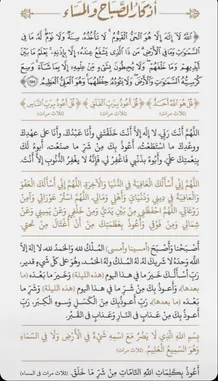 أذكار الصباح والمساء
﴿اللَّهُ لَا إِلَٰهَ إِلَّا هُوَ الْحَيُّ الْقَيُّومُ لَا تَأْخُذُهُ سِنَةٌ وَلَا نَوْمٌ لَّهُ مَا فِي
السَّمَاوَاتِ وَمَا فِي الْأَرْضِ مَن ذَا الَّذِي يَشْفَعُ عِندَهُ إِلَّا بِإِذْنِهِ يَعْلَمُ مَا بَيْنَ
أَيْدِيهِمْ وَمَا خَلْفَهُمْ وَلَا يُحِيطُونَ بِشَيْءٍ مِّنْ عِلْمِهِ إِلَّا بِمَا شَاءَ وَسِعَ
كُرْسِيُّهُ السَّمَاوَاتِ وَالْأَرْضَ وَلَا يَئُودُهُ حِفْظُهُمَا وَهُوَ الْعَلِيُّ الْعَظِيمُ﴾
﴿قُلْ هُوَ اللَّهُ أَحَدٌ﴾ ﴿قُلْ أَعُوذُ بِرَبِّ الْفَلَقِ﴾ ﴿قُلْ أَعُوذُ بِرَبِّ النَّاسِ﴾
(ثلاث مرات) (ثلاث مرات) (ثلاث مرات)
اللَّهُمَّ أَنْتَ رَبِّي لَا إِلَهَ إِلَّا أَنْتَ خَلَقْتَنِي وَأَنَا عَبْدُكَ، وَأَنَا عَلَى عَهْدِكَ
وَوَعْدِكَ مَا اسْتَطَعْتُ، أَعُوذُ بِكَ مِنْ شَرِّ مَا صَنَعْتُ، أَبُوءُ لَكَ
بِنِعْمَتِكَ عَلَيَّ، وَأَبُوءُ بِذَنْبِي فَاغْفِرْ لِي، فَإِنَّهُ لَا يَغْفِرُ الذُّنُوبَ إِلَّا أَنْتَ.
اللَّهُمَّ إِنِّي أَسْأَلُكَ الْعَافِيَةَ فِي الدُّنْيَا وَالْآخِرَةِ، اللَّهُمَّ إِنِّي أَسْأَلُكَ الْعَفْوَ
وَالْعَافِيَةَ فِي دِينِي وَدُنْيَايَ وَأَهْلِي وَمَالِي، اللَّهُمَّ اسْتُرْ عَوْرَاتِي وَآمِنْ
رَوْعَاتِي، اللَّهُمَّ احْفَظْنِي مِنْ بَيْنِ يَدَيَّ وَمِنْ خَلْفِي وَعَنْ يَمِينِي وَعَنْ
شِمَالِي وَمِنْ فَوْقِي وَأَعُوذُ بِعَظَمَتِكَ مِنْ أَنْ أُغْتَالَ مِنْ تَحْتِي.
أَصْبَحْنَا وَأَصْبَحَ (أمسينا وأمسى) الْمُلْكُ لله وَالْحَمْدُ لله، لَا إِلَهَ إِلَّا
اللَّهُ وَحْدَهُ لَا شَرِيكَ لَهُ، لَهُ الْمُلْكُ وَلَهُ الْحَمْدُ، وَهُوَ عَلَى كُلِّ شَيْءٍ قَدِيرٌ،
رَبِّ أَسْأَلُكَ خَيْرَ مَا فِي هَذَا الْيَوْمِ (هذه الليلة) وَخَيْرَ مَا بَعْدَهُ (ما
بعدها)، وَأَعُوذُ بِكَ مِنْ شَرِّ مَا فِي هَذَا الْيَوْمِ (هذه الليلة) وَشَرِّ مَا
بَعْدَهُ (ما بعدها)، رَبِّ أَعُوذُ بِكَ مِنَ الْكَسَلِ وَسُوءِ الْكِبَرِ، رَبِّ
أَعُوذُ بِكَ مِنْ عَذَابٍ فِي النَّارِ وَعَذَابٍ فِي الْقَبْرِ.
بِسْمِ اللَّهِ الَّذِي لَا يَضُرُّ مَعَ اسْمِهِ شَيْءٌ فِي الْأَرْضِ وَلَا فِي السَّمَاءِ
وَهُوَ السَّمِيعُ الْعَلِيمُ. (ثلاث مرات)
أَعُوذُ بِكَلِمَاتِ اللَّهِ التَّامَّاتِ مِنْ شَرِّ مَا خَلَقَ. (ثلاث مرات في المساء)